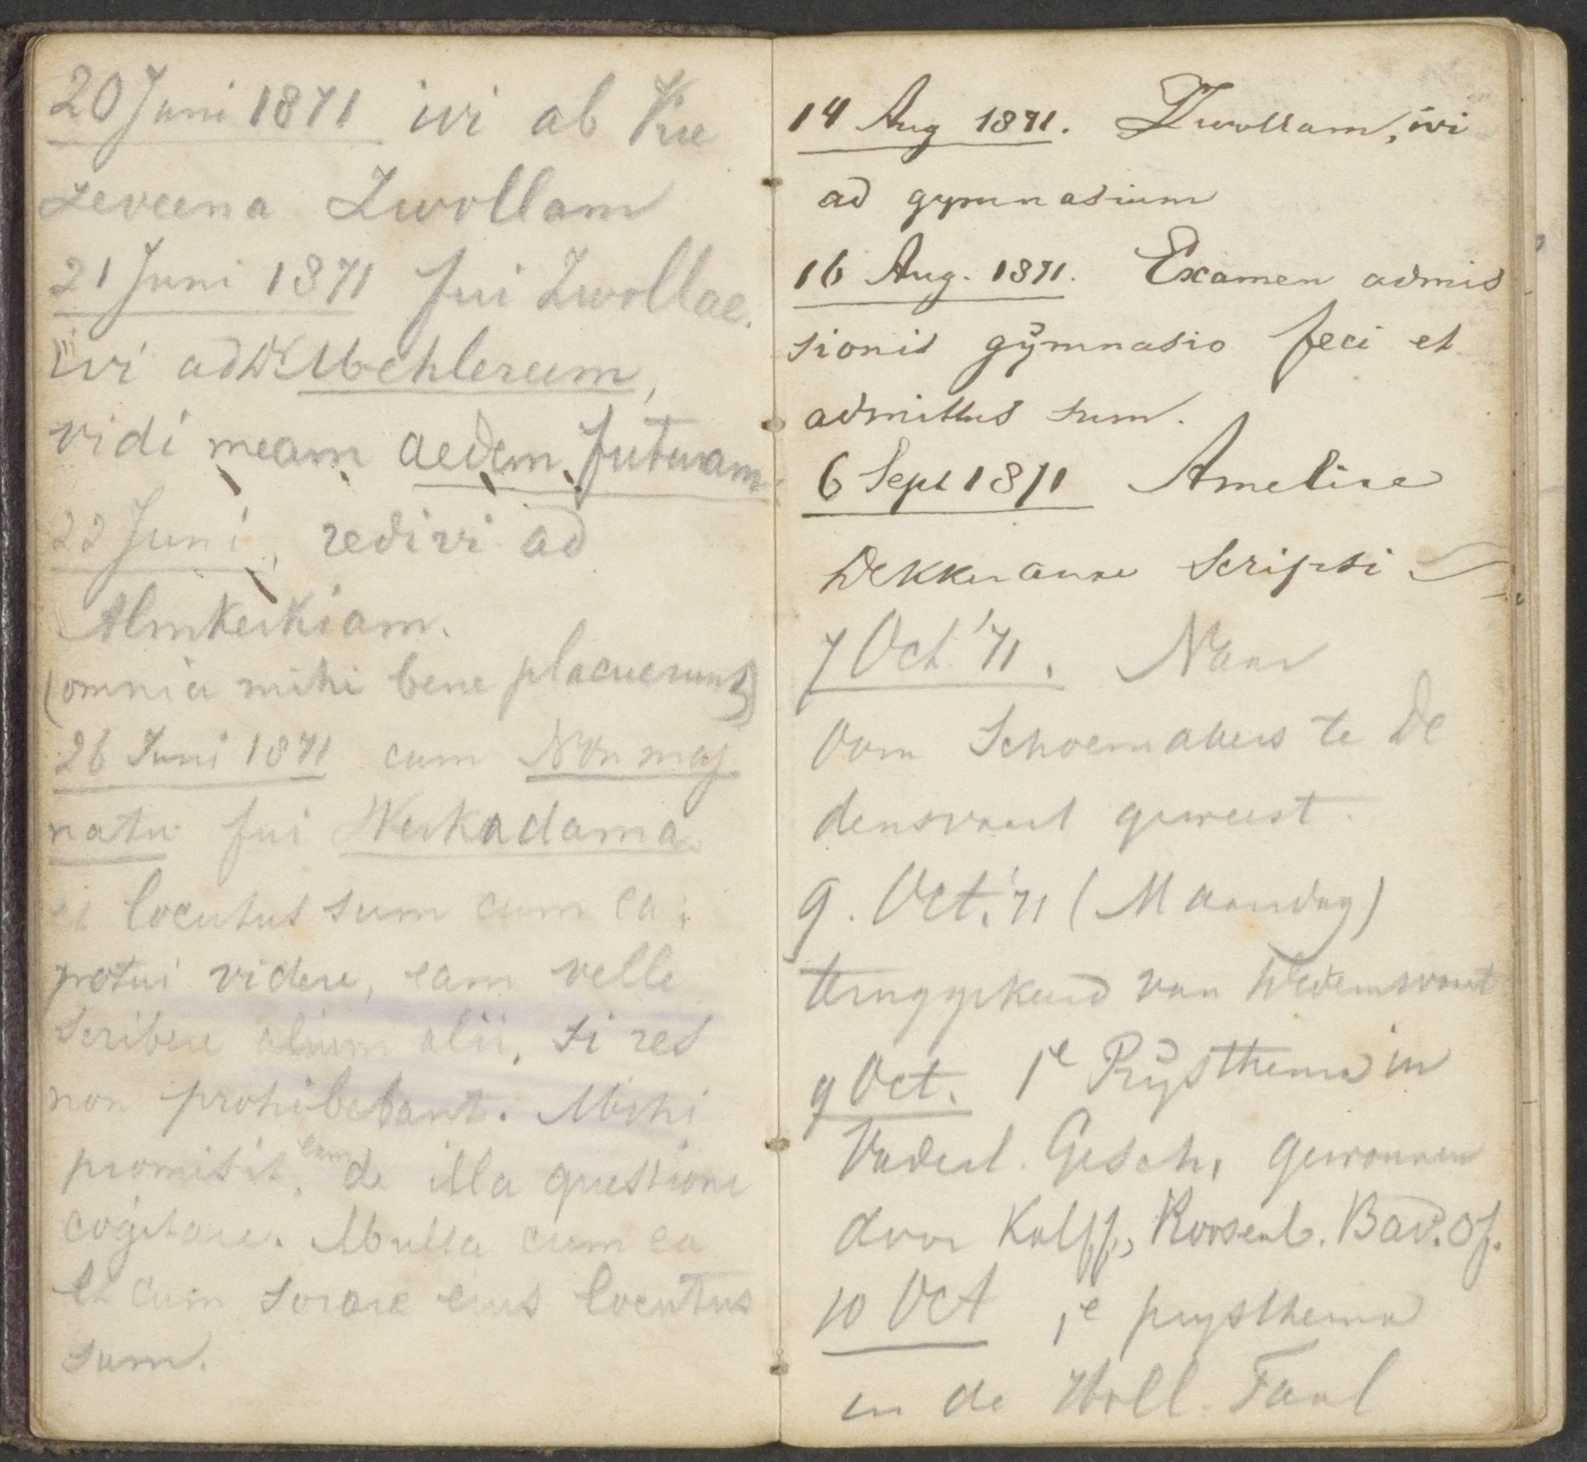 20 Juni 1871 ivi ab Kie
zeveena Zwollam
21 Juni 1871 fui Zwollae.
ivi ad Dr Mehlerum,
vidi meam aedem futuram
22 Juni, redivi ad
Almkerkiam.
(omnia mihi bene placuerunt)
26 Juni 1871 cum maj
natu fui Werkadama
et locutus sum cum ea;
potui videre, eam velle
scribere alium alii, si res
non prohibebant. Mihi
promisit, eam de illa questione
cogitare. Multa cum ea
et cum sorore eius locutus
sum.
14 Aug 1871. Zwollam, ivi
ad gymnasium
16 Aug. 1871. Examen admis
sionis gÿmnasio feci et
admittus sum.
6 Sept 1871 Amelise
Dekkeranae scripsi
7 Oct '71. Naar
Oom Schoemakers te De
densvaart geweest.
9. Oct. '71 (Maandag)
teruggekeerd van Dedemsvaart
9 Oct. 1e Prÿsthema in
Vaderl. Gesch, gewonnen
door Kalff, Roosenb. Bad. Of.
10 Oct 1e prysthema
in de Holl. Taal